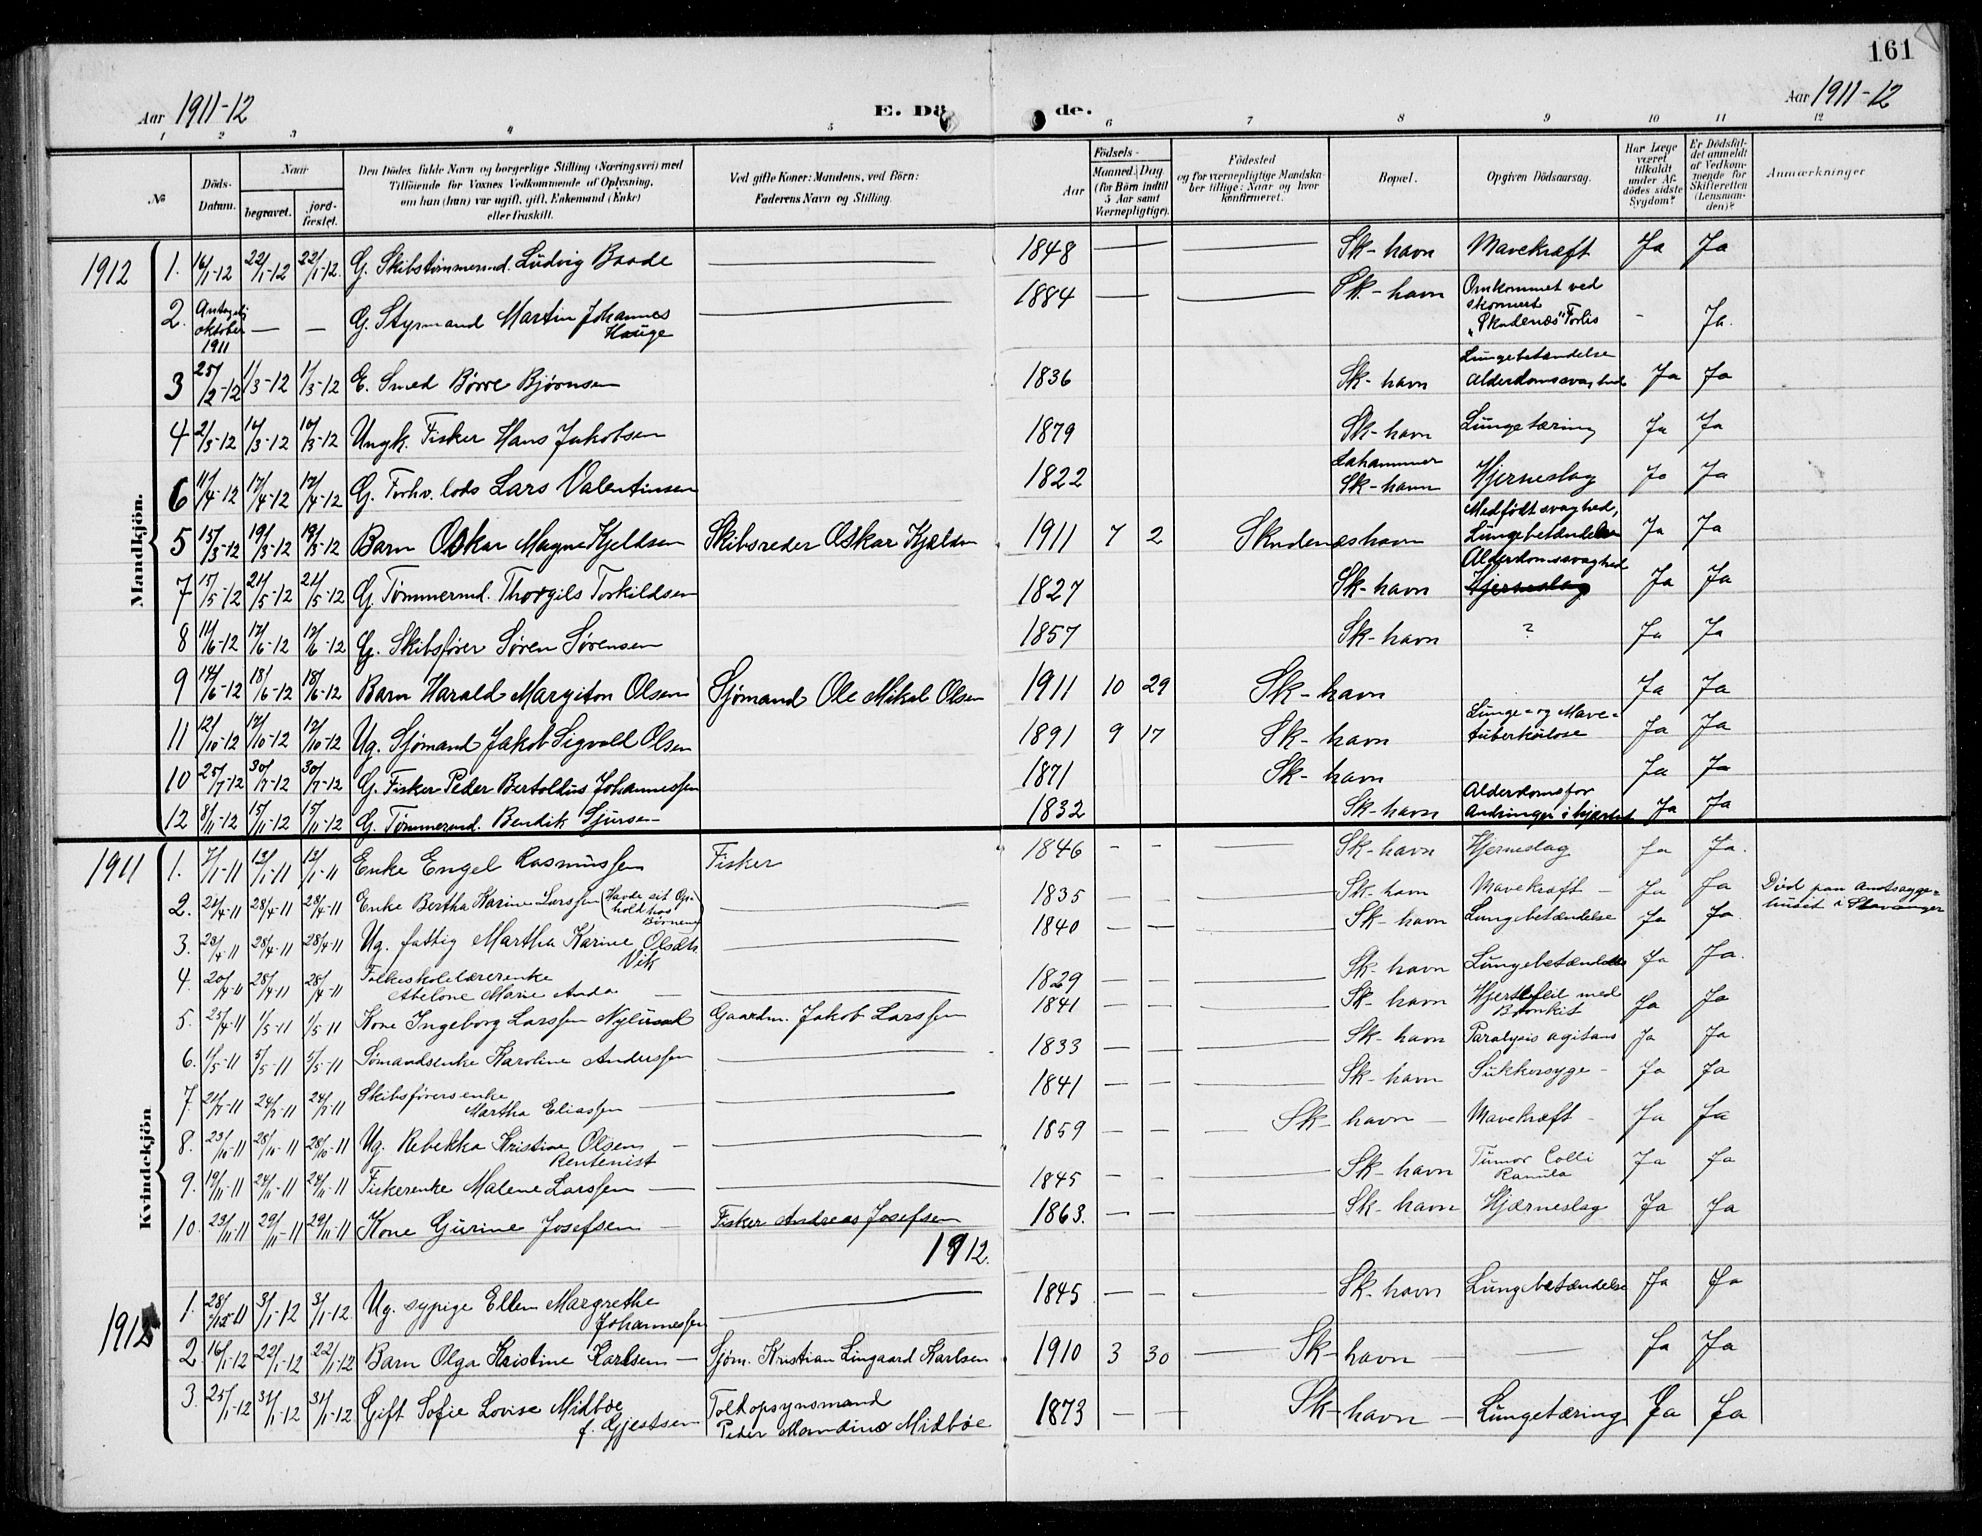 161
Aar 1911-12 E. Dö de. Aar 1911-12
1 2 3 4 5 6 7 8 9 10 11 12
№ Döds-Datum. Naar begravet. jordfæstet. Den Dödes fulde Navn og borgerlige Stilling (Næringsvei) med Tilföiende for Voxnes Vedkommende af Oplysning, om han (hun) var ugift, gift, Enkemand (Enke) eller fraskilt. Ved gifte Koner: Mandens, ved Börn: Faderens Navn og Stilling. Aar Födsels- Maaned. Dag (for Börn indtil 5 Aar samt Værnepligtige). Födested og for værnepligtige Mandskaber tillige: Naar og hvor konfirmeret. Bopæl. Opgiven Dödsaarsag. Har Læge været tilkaldt under Afdödes sidste Sygdom? Er Dödsfaldet anmeldt af Vedkommende for Skifteretten (Lensmanden)? Anmærkninger
Mandkjön.
1912 1. 16/1-12 22/1-12 22/1-12. G. Skibstømmermd. Ludvig Baade 1848 — — Sk-havn Mavekræft Ja Ja
2. Antagelig oktober 1911 — — G. Styrmand Martin Johannes Hauge 1884 — — Sk-havn Omkommet ved skonnert „Skudenæs" Forlis - Ja.
3 25/2-12 1/3-12 1/3-12 E. Smed Børre Bjørnsen 1836 Sk-havn Lungebetændelse Alderdomssvaghed Ja Ja
4 2/3-12 10/3-12 10/3-12 Ungk. Fisker Hans Jakobsen 1879 Sk-havn Lungetæring Ja Ja
6 11/4-12 17/4-12 17/4-12 G. Forhv. lods Lars Valentinsen 1822 Lahammer Sk-havn Hjerneslag Ja Ja
5 15/3-12 19/3-12 19/3-12 Barn Oskar Magne Kjeldsen Skibsreder Oskar Kjeldsen 1911 7 2 Skudeneshavn Medfødt svaghed, Lungebetændelse Ja Ja
7 15/5-12 21/5-12 21/5-12 G. Tømmermd. Thorgils Torkildsen 1827 Sk-havn Alderdomssvaghed Hjerneslag Ja Ja
8 11/6-12 17/6-12 17/6-12 G. Skibsfører Søren Sørensen 1857 Sk-havn ? Ja Ja
9 14/6-12 18/6-12 18/6-12 Barn Harald Margiton Olsen Sjømand Ole Mikal Olsen 1911 10 29 Sk-havn Ja Ja
11 12/10-12 17/10-12 17/10-12 Ug. Sjømand Jakob Sigvald Olsen 1891 9 17 Sk-havn Lunge- og Mave-tuberkulose Ja Ja
10 25/7-12 30/7-12 30/7-12 G. Fisker Peder Bertoldus Johannessen 1871 Sk-havn Ja Ja
12 8/11-12 15/11-12 15/11-12 G. Tømmermd. Bendik Sjursen 1832 Sk-havn Alderdomsfor andringer i hjærtet Ja Ja
Kvindekjön
1911 1. 7/1-11 13/1-11 13/1-11 Enke Engel Rasmussen Fisker 1846 - - — Sk-havn Hjerneslag Ja Ja.
2. 21/4-11 28/4-11 28/4-11 Enke Bertha Karine Larssen (Havde sit Ophold hos Børnene) 1835 — — Sk-havn Mavekræft - Ja Ja Død paa Amtssygehuset i Stavanger
3. 23/4-11 28/4-11 28/4-11 Ug. fattig Martha Karine Olsdtr. Vik 1840 — — Sk-havn Lungebetændelse Ja Ja.
4. 20/4-11 28/4-11 28/4-11 Folkeskolelærerenke Abelone Marie Anda 1829 — — Sk-havn Lungebetændelse Ja Ja.
5. 25/4-11 1/5-11 1/5-11 Kone Ingeborg Larssen Nylund Gaardm. Jakob Larssen 1841 — — Sk-havn Hjertefeil med Bronkit Ja Ja
6. 1/5-11 5/5-11 5/5-11 Sømandsenke Karoline Anderssen 1833 — — Sk-havn Paralysis agitans Ja Ja
7. 21/7-11 24/7-11 24/7-11 Skibsførersenke Martha Eliassen 1841 — — Sk-havn Sukkersyge - Ja Ja
8. 23/10-11 28/10-11 28/10-11 Ug. Rebekka Kristine Olsen Rentenist 1859 — — Sk-havn - Mavekræft - Ja Ja
9. 19/11-11 24/11-11 24/11-11 Fiskerenke Malene Larssen 1845 — - Sk-havn Tumor Colli Ranula Ja Ja
10. 23/11-11 29/11-11 29/11-11 Kone Gurine Josefsen Fisker Andreas Josefsen 1863. — — Sk-havn Hjærneslag Ja Ja
1912.
1912 1. 28/12-11 3/1-12 3/1-12. Ug. sypige Ellen Margrethe Johannessen 1845 — — Sk-havn Lungebetændelse Ja Ja
2. 16/1-12 22/1-12 22/1-12 Barn Olga Kristine Karlsen — Sjøm. Kristian Lingaard Karlsen 1910 3 30 Sk-havn — Ja Ja
3. 25/1-12 31/1-12 31/1-12 Gift Sofie Lovise Midbøe f. Gjestsen Toldopsynsmand Peder Mandius Midbøe 1873 — — Sk-havn - Lungetæring Ja Ja